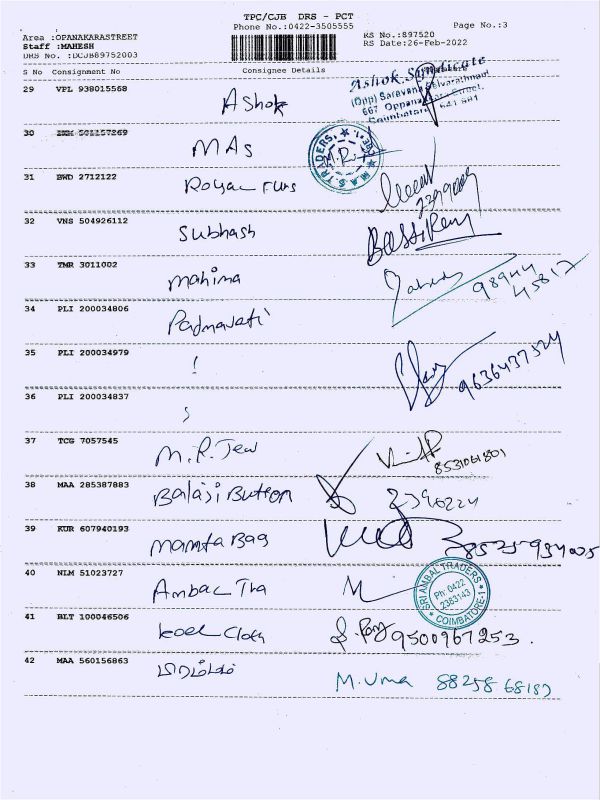 TPC/CJB DRS - PCT
Phone No.:0422-3505555
Page No.:3
Area :OPANAKARASTREET
RS No.:897520
Staff :MAHESH
RS Date:26-Feb-2022
DRS No. :DCJB89752003
S No Consignment No Consignee Details
29 VPL 938015568
Ashok
Ashok Syndicate
(Opp) Saravana Selvarathnam
667 Oppanakara Street,
Coimbatore - 641 001
30 501157269
MAS
M.A.S. TRADERS
31 BWD 2712122
Royal Furs
32 VNS 504926112
Subhash
33 TMR 3011002
Mahima
98944
45817
34 PLI 200034806
Padmavati
35 PLI 200034979
9636437524
36 PLI 200034837
37 TCG 7057545
M.R. Jew
8531061801
38 MAA 285387883
Balaji Button
2390224
39 KUR 607940193
Mamta Bag
40 NLM 51023727
Ambal Tra
M
SRI AMBAL TRADERS
Ph: 0422
2383143
COIMBATORE-1
41 BLT 100046506
Koel Cloth
9500967253.
42 MAA 560156863
M. Uma 88258 68187